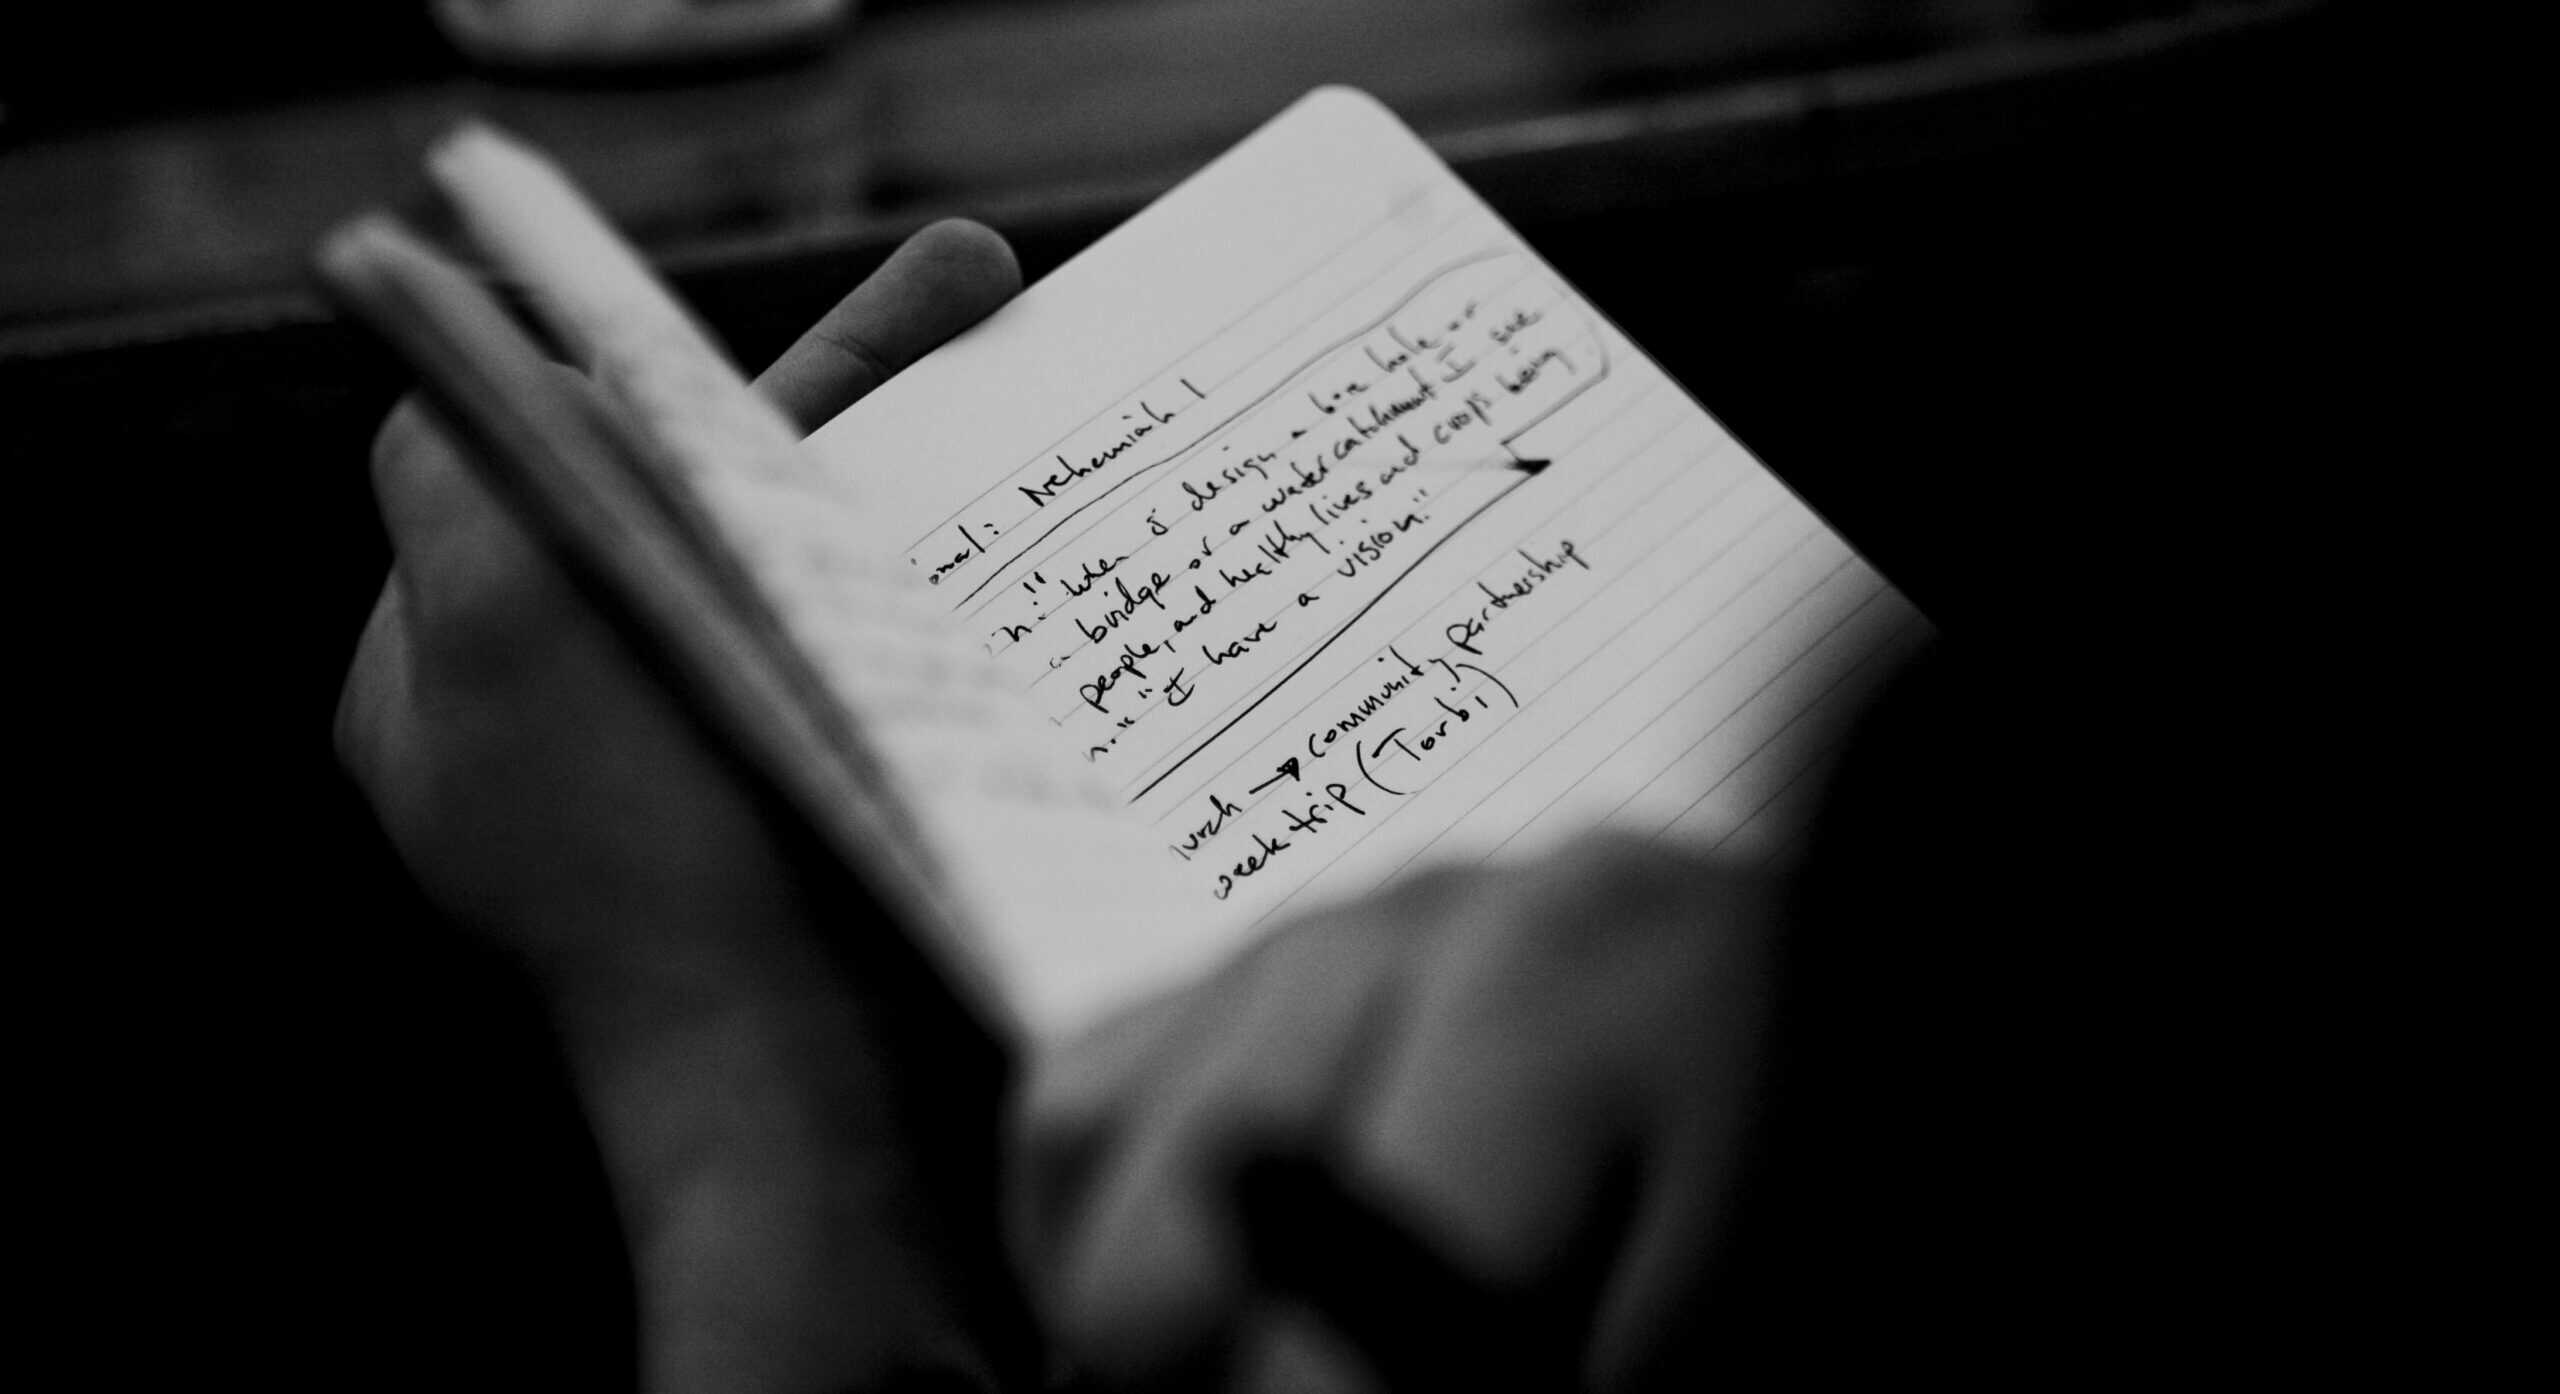 ional: Nehemiah 1
n: "When I design a bore hole or
a bridge or a water catchment I see
people, and healthy lives and crops being
n." "I have a vision."
urch → Community partnership
week trip (Torbi)